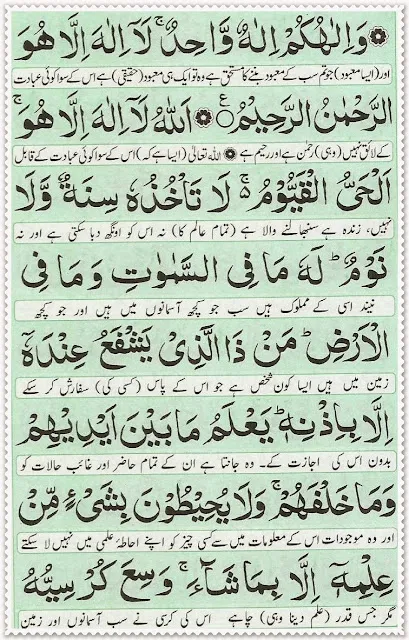 ۞ وَاِلٰـهُكُمْ اِلٰهٌ وَّاحِدٌ ۚ لَآ اِلٰهَ اِلَّا هُوَ
اور (ایسا معبود) جو تم سب کے معبود بننے کا مستحق ہے وہ تو ایک ہی معبود (حقیقی) ہے اس کے سوا کوئی عبادت
الرَّحْمٰنُ الرَّحِیْمُ ۞ اَللّٰهُ لَآ اِلٰهَ اِلَّا هُوَ ۚ
کے لائق نہیں (وہی) رحمٰن ہے اور رحیم ہے ۞ اللہ تعالیٰ (ایسا ہے کہ) اس کے سوا کوئی عبادت کے قابل
اَلْحَیُّ الْقَیُّوْمُ ۚ لَا تَاْخُذُهٗ سِنَةٌ وَّلَا
نہیں، زندہ ہے سنبھالنے والا ہے (تمام عالم کا) نہ اس کو اونگھ دبا سکتی ہے اور نہ
نَوْمٌ ؕ لَهٗ مَا فِی السَّمٰوٰتِ وَ مَا فِی
نیند اسی کے مملوک ہیں سب جو کچھ آسمانوں میں ہیں اور جو کچھ
الْاَرْضِ ؕ مَنْ ذَا الَّذِیْ یَشْفَعُ عِنْدَهٗۤ
زمین میں ہیں ایسا کون شخص ہے جو اس کے پاس (کسی کی) سفارش کر سکے
اِلَّا بِاِذْنِهٖ ؕ یَعْلَمُ مَا بَیْنَ اَیْدِیْهِمْ
بدون اس کی اجازت کے۔ وہ جانتا ہے ان کے تمام حاضر اور غائب حالات کو
وَمَا خَلْفَهُمْ ۚ وَلَا یُحِیْطُوْنَ بِشَیْءٍ مِّنْ
اور وہ موجودات اس کے معلومات میں سے کسی چیز کو اپنے احاطۂ علمی میں نہیں لا سکتے
عِلْمِهٖۤ اِلَّا بِمَا شَآءَ ۚ وَسِعَ كُرْسِیُّهُ
مگر جس قدر (علم دینا وہی) چاہے اس کی کرسی نے سب آسمانوں اور زمین